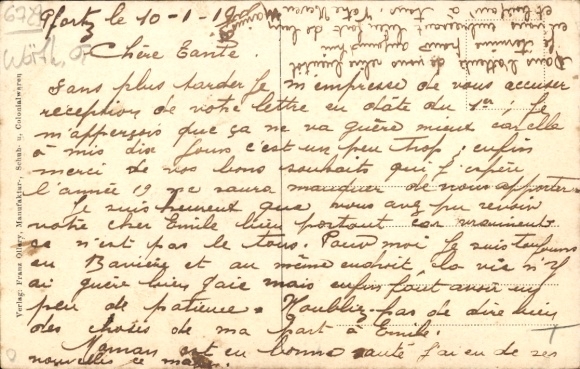 Pfortz le 10-1-19
Chère Tante.
Sans plus tarder je m'empresse de vous accuser
réception de votre lettre en date du 1er; je
m'apperçois que ça ne va guère mieux car elle
à mis dix jours c'est un peu trop; enfin
merci de vos bons souhaits qui j'espère
l'année 19 ne saura manquer de nous apporter.
Je suis heureux que vous avez pu revoir
votre cher Emile bien portant car vraiment
ce n'est pas le tous. Pour moi je suis toujours
en Bavière et au même endroit, la vie n'y
ai guère bien gaie mais enfin faut avoir un
peu de patience. N'oubliez pas de dire bien
des choses de ma part à Emile.
Maman est en bonne santé j'ai eu de ses
nouvelles ce matin.
Dans l'attente de vous relire bientôt
je termine pour aujourd'hui
en vous embrassant bien fort de loin
et à tous. Votre Neveu
Verlag: Franz Offery, Manufaktur-, Schuh- u. Colonialwaren
672
Wörth